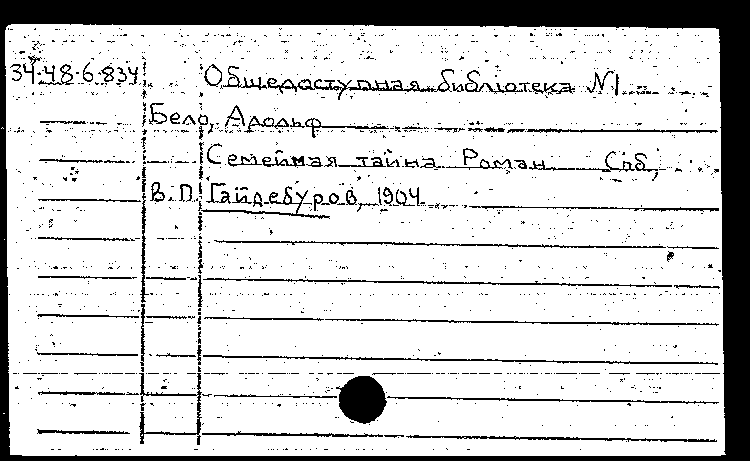 34.48.6.834 Общедоступная библіотека N1
Бело, Адольф
Семейная тайна Роман Спб,
В.П. Гайдебуров, 1904